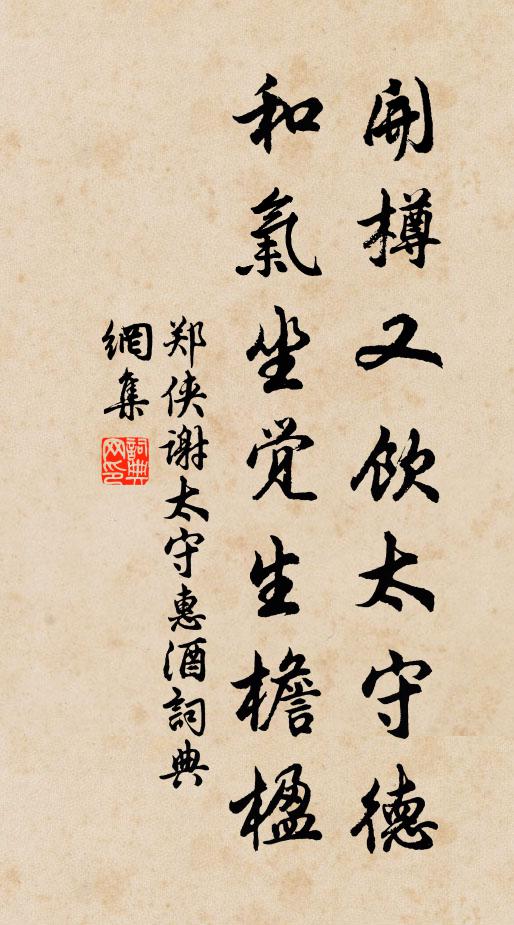 開樽又飲太守德
和氣坐觉生檐楹
郑侠谢太守惠酒詞典
網集
詞典
网印